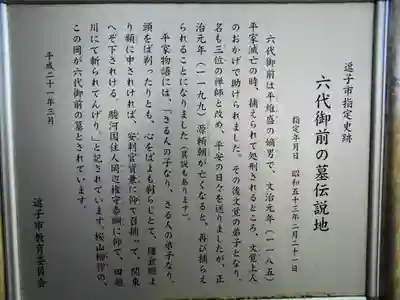 逗子市指定史跡
六代御前の墓伝説地
指定年月日 昭和五十三年二月二十一日
六代御前は平維盛の嫡男で、文治元年(一一八五)
平家滅亡の時、捕えられて処刑されるところ、文覚上人
のおかげで助けられました。その後文覚の弟子となり、
名も三位の禅師と改め、平安の日々を送りましたが、正
治元年(一一九九)源頼朝が亡くなると、再び捕らえ
られることになりました(異説もあります)。
平家物語には、「さる人の子なり、さる人の弟子なり、
頭をば剃ったりとも、心をばよも剃らじとて、鎌倉殿よ
り頻に申されければ、安判官資兼に仰て召捕って、関東
へぞ下されける。駿河国住人岡辺権守泰綱に仰て、田越
川にて斬られてんげり。」と記されています。桜山柳作の、
この岡が六代御前の墓とされています。
平成二十一年三月
逗子市教育委員会